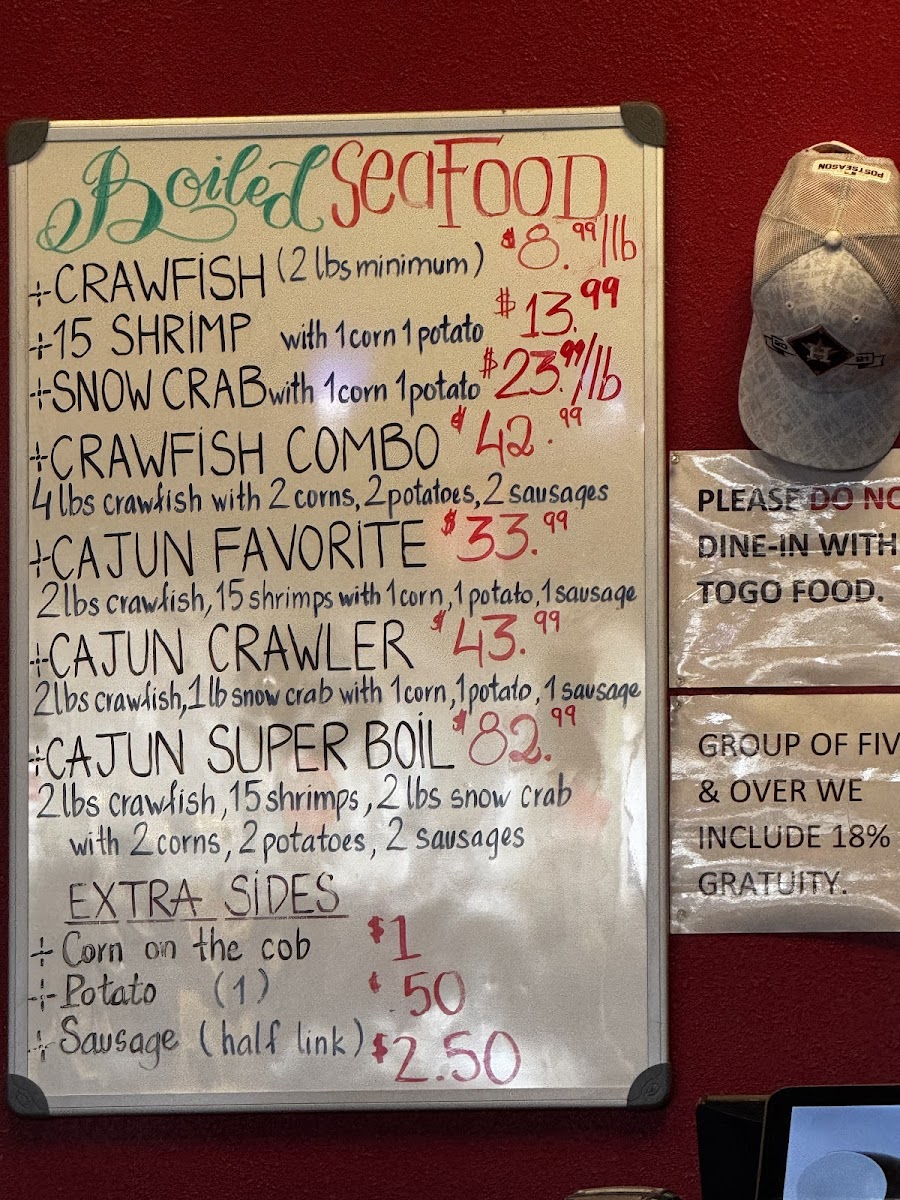 Boiled SeaFOOD
CRAWFISH (2 lbs minimum) $8.99/lb
15 SHRIMP with 1 corn 1 potato $13.99
SNOW CRAB with 1 corn 1 potato $23.99/lb
CRAWFISH COMBO $42.99
4 lbs crawfish with 2 corns, 2 potatoes, 2 sausages
CAJUN FAVORITE $33.99
2 lbs crawfish, 15 shrimps with 1 corn, 1 potato, 1 sausage
CAJUN CRAWLER $43.99
2 lbs crawfish, 1 lb snow crab with 1 corn, 1 potato, 1 sausage
CAJUN SUPER BOIL $82.99
2 lbs crawfish, 15 shrimps, 2 lbs snow crab
with 2 corns, 2 potatoes, 2 sausages
EXTRA SIDES
Corn on the cob $1
Potato (1) $.50
Sausage (half link) $2.50
POSTSEASON
H
PLEASE DO NO
DINE-IN WITH
TOGO FOOD.
GROUP OF FIV
& OVER WE
INCLUDE 18%
GRATUITY.